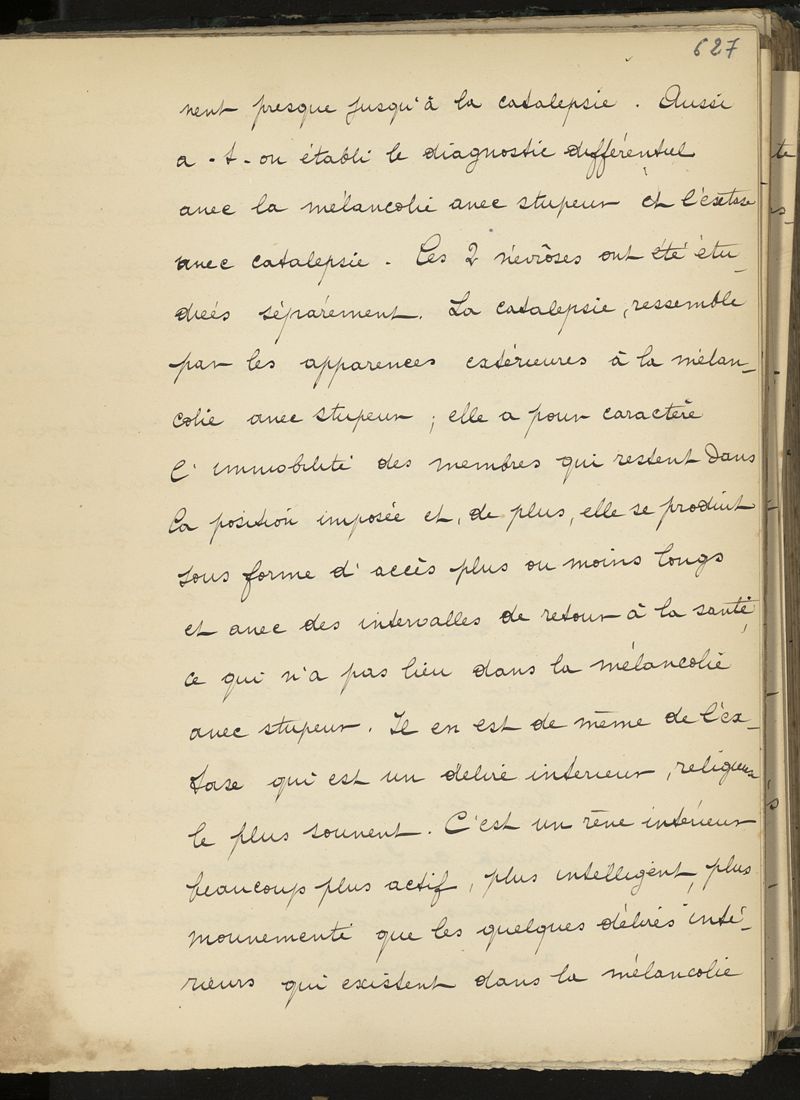 627
nent presque jusqu'à la catalepsie. Aussi
a-t-on établi le diagnostic différentiel
avec la mélancolie avec stupeur et l'extase
avec catalepsie. Ces 2 névroses ont été étu-
diées séparément. La catalepsie, ressemble
par les apparences extérieures à la mélan-
colie avec stupeur ; elle a pour caractère
l'immobilité des membres qui restent dans
la position imposée et, de plus, elle se produit
sous forme d'accès plus ou moins longs
et avec des intervalles de retour à la santé,
ce qui n'a pas lieu dans la mélancolie
avec stupeur. Il en est de même de l'ex-
tase qui est un délire intérieur, religieux
le plus souvent. C'est un rêve intérieur
beaucoup plus actif, plus intelligent, plus
mouvementé que les quelques délires inté-
rieurs qui existent dans la mélancolie